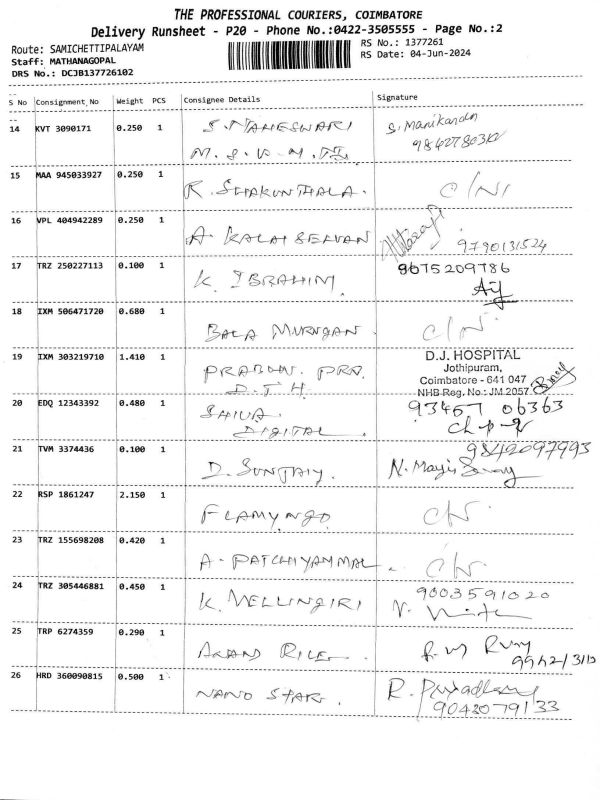 THE PROFESSIONAL COURIERS, COIMBATORE
Delivery Runsheet - P20 - Phone No.:0422-3505555 - Page No.:2
Route: SAMICHETTIPALAYAM
RS No.: 1377261
Staff: MATHANAGOPAL
RS Date: 04-Jun-2024
DRS No.: DCJB137726102
S No Consignment No Weight PCS Consignee Details Signature
14 KVT 3090171 0.250 1 S. MAHESWARI S. Manikandan
M. S. V. M.
15 MAA 945033927 0.250 1 R. SHAKUNTHALA. C/N
16 VPL 404942289 0.250 1 A. KALAI SELVAN 9790131524
17 TRZ 250227113 0.100 1 K. IBRAHIM 9675209786
18 IXM 506471720 0.680 1 BALA MURUGAN. C/N.
19 IXM 303219710 1.410 1 PRABHU. PRO. D.J. HOSPITAL
D.T.H. Jothipuram,
Coimbatore - 641 047
NHB Reg. No.: JM 2057
20 EDQ 12343392 0.480 1 SHIVA. 93457 06363
DIGITAL
21 TVM 3374436 0.100 1 D. SUNJAIY. 9842097993
22 RSP 1861247 2.150 1 FLAMYNGO C/N.
23 TRZ 155698208 0.420 1 A. PATCHIYAMMAL. C/N.
24 TRZ 305446881 0.450 1 K. VELLINGIRI 9003591020
25 TRP 6274359 0.290 1 ANAND
26 HRD 360090815 0.500 1 NANO STAR.
9042079133